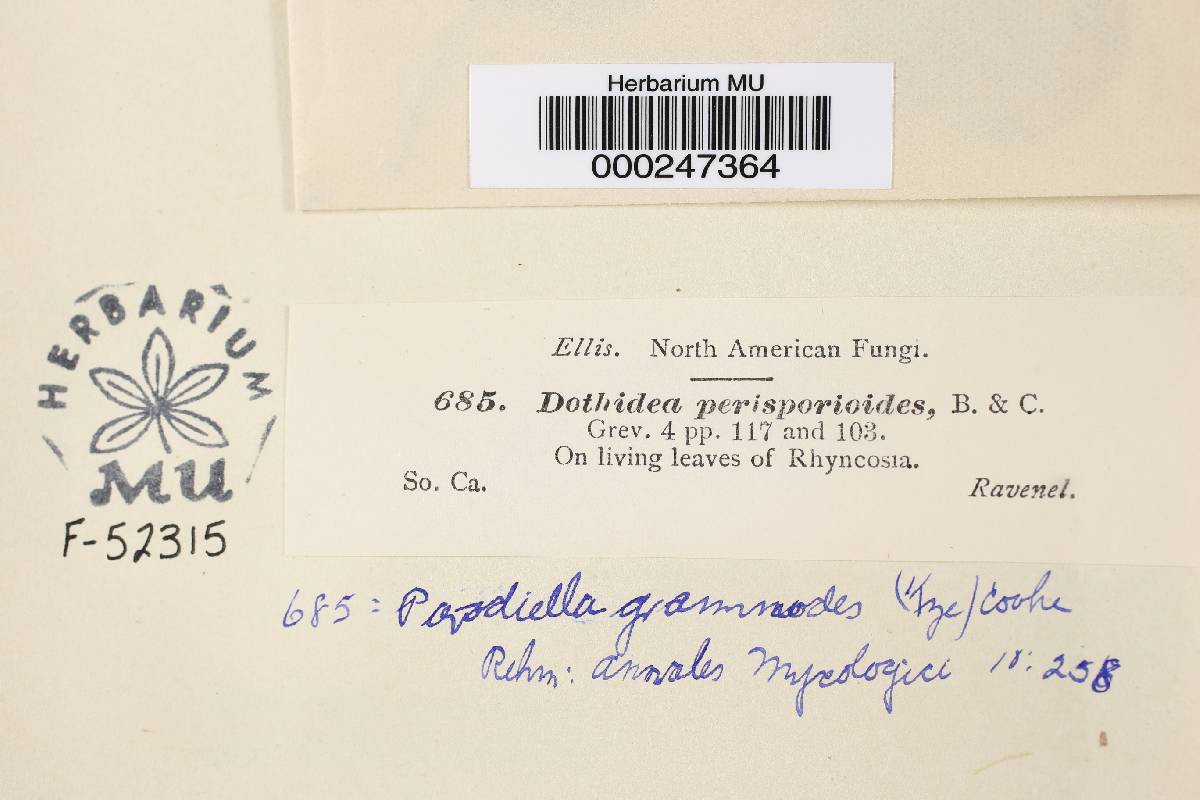 Herbarium MU
000247364
HERBARIUM
MU
F-52315
Ellis. North American Fungi.
685. Dothidea perisporioides, B. & C.
Grev. 4 pp. 117 and 103.
On living leaves of Rhyncosia.
So. Ca.
Ravenel.
685 = Parodiella grammodes (Kze) Cooke
Rehm: Annales Mycologici 258